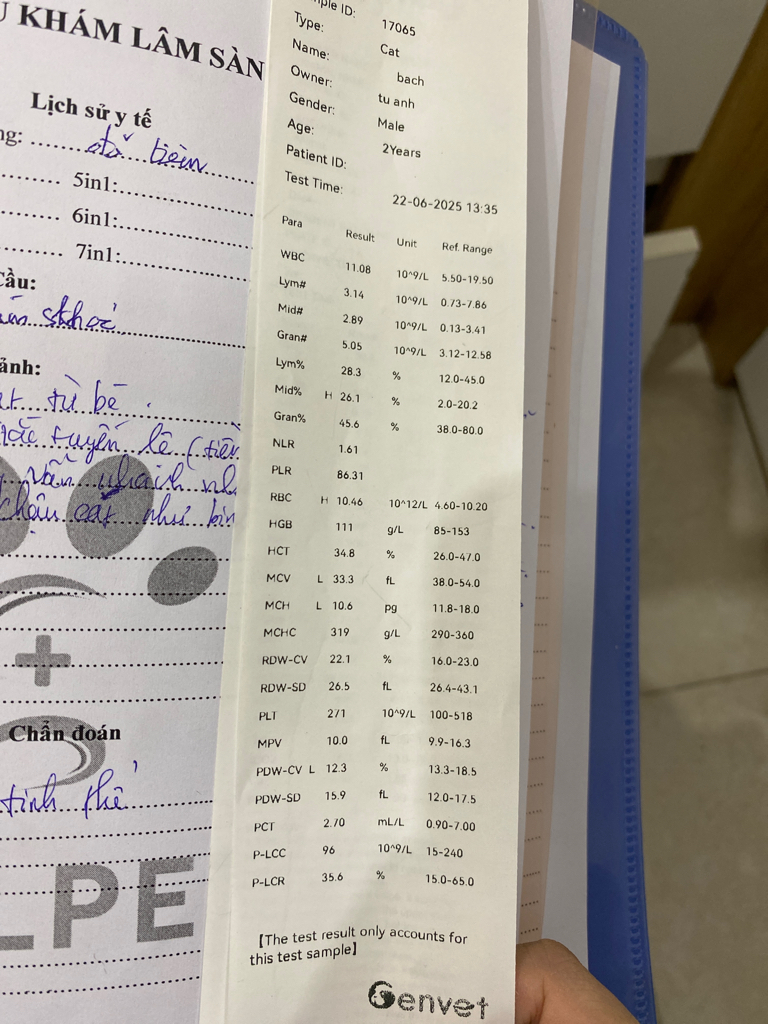 KHÁM LÂM SÀN
Lịch sử y tế
ng: ......đã tiêm......
...... 5in1:......
...... 6in1:......
...... 7in1:......
Cầu:
khoẻ
ảnh:
từ bé .
tuyến lệ (tiền
vẫn nhanh nh
chậu cát như bìn
Chẩn đoán
tinh thể
LPE
ple ID: 17065
Type: Cat
Name: bach
Owner: tu anh
Gender: Male
Age: 2Years
Patient ID:
Test Time: 22-06-2025 13:35
Para Result Unit Ref. Range
WBC 11.08 10^9/L 5.50-19.50
Lym# 3.14 10^9/L 0.73-7.86
Mid# 2.89 10^9/L 0.13-3.41
Gran# 5.05 10^9/L 3.12-12.58
Lym% 28.3 % 12.0-45.0
Mid% H 26.1 % 2.0-20.2
Gran% 45.6 % 38.0-80.0
NLR 1.61
PLR 86.31
RBC H 10.46 10^12/L 4.60-10.20
HGB 111 g/L 85-153
HCT 34.8 % 26.0-47.0
MCV L 33.3 fL 38.0-54.0
MCH L 10.6 pg 11.8-18.0
MCHC 319 g/L 290-360
RDW-CV 22.1 % 16.0-23.0
RDW-SD 26.5 fL 26.4-43.1
PLT 271 10^9/L 100-518
MPV 10.0 fL 9.9-16.3
PDW-CV L 12.3 % 13.3-18.5
PDW-SD 15.9 fL 12.0-17.5
PCT 2.70 mL/L 0.90-7.00
P-LCC 96 10^9/L 15-240
P-LCR 35.6 % 15.0-65.0
【The test result only accounts for
this test sample】
Genvet